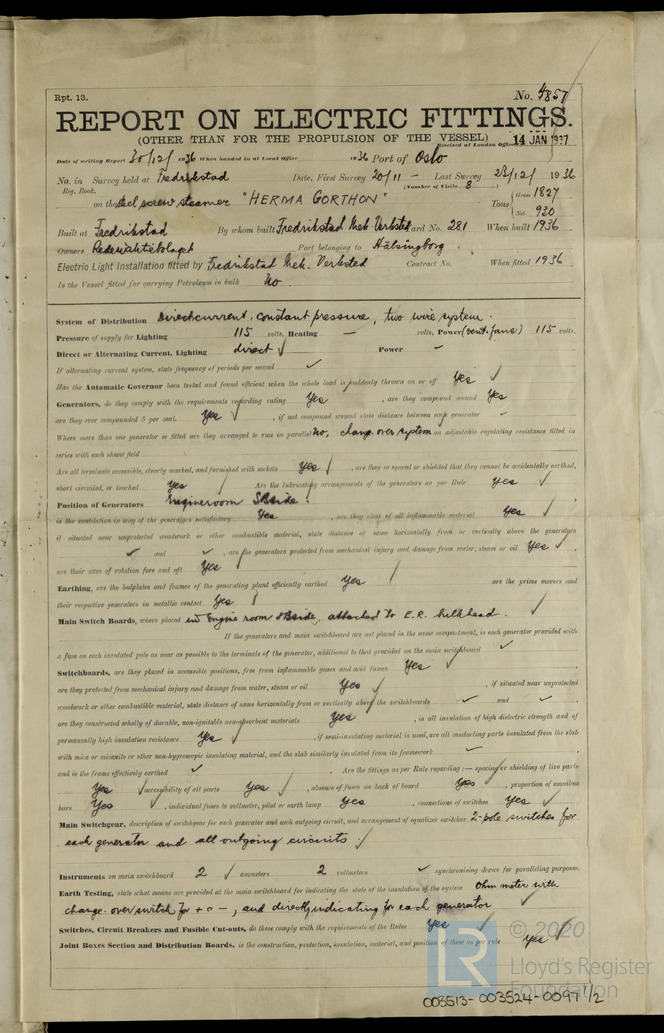 Rpt. 13.
No. 4857
REPORT ON ELECTRIC FITTINGS.
(OTHER THAN FOR THE PROPULSION OF THE VESSEL)
Received at London Office 14 JAN 1937
Date of writing Report 30/12/1936 When handed in at Local Office 1936 Port of Oslo
No. in Survey held at Fredrikstad Date, First Survey 20/11 – Last Survey 23/12/ 1936
Reg. Book. (Number of Visits 8
on the steel screw steamer "HERMA GORTHON" Tons { Gross 1827
Net 920
Built at Fredrikstad By whom built Fredrikstad Mek. Verksted Yard No. 281 When built 1936
Owners Rederiaktiebolaget Port belonging to Hälsingborg
Electric Light Installation fitted by Fredrikstad Mek. Verksted Contract No. When fitted 1936
Is the Vessel fitted for carrying Petroleum in bulk No.
System of Distribution Direct current, constant pressure, two wire system.
Pressure of supply for Lighting 115 volts, Heating — volts, Power (vent. fans) 115 volts.
Direct or Alternating Current, Lighting direct ✓ Power –
If alternating current system, state frequency of periods per second ✓
Has the Automatic Governor been tested and found efficient when the whole load is suddenly thrown on or off Yes ✓
Generators, do they comply with the requirements regarding rating Yes , are they compound wound Yes
are they over compounded 5 per cent. Yes ✓ , if not compound wound state distance between each generator ✓
Where more than one generator is fitted are they arranged to run in parallel No, change over system an adjustable regulating resistance fitted in
series with each shunt field
Are all terminals accessible, clearly marked, and furnished with sockets Yes ✓ , are they so spaced or shielded that they cannot be accidentally earthed,
short circuited, or touched Yes ✓ Are the lubricating arrangements of the generators as per Rule Yes ✓
Position of Generators Engineroom SBside.
is the ventilation in way of the generators satisfactory Yes , are they clear of all inflammable material Yes ✓
if situated near unprotected woodwork or other combustible material, state distance of same horizontally from or vertically above the generators
✓ and ✓ , are the generators protected from mechanical injury and damage from water, steam or oil Yes ✓
are their axes of rotation fore and aft Yes ✓
Earthing, are the bedplates and frames of the generating plant efficiently earthed Yes ✓ are the prime movers and
their respective generators in metallic contact Yes ✓
Main Switch Boards, where placed in Engine room SBside, attached to E.R. bulkhead. ✓
If the generators and main switchboard are not placed in the same compartment, is each generator provided with
a fuse on each insulated pole as near as possible to the terminals of the generator, additional to that provided on the main switchboard ✓
Switchboards, are they placed in accessible positions, free from inflammable gases and acid fumes Yes ✓
are they protected from mechanical injury and damage from water, steam or oil Yes ✓ , if situated near unprotected
woodwork or other combustible material, state distance of same horizontally from or vertically above the switchboards ✓ and ✓
are they constructed wholly of durable, non-ignitable non-absorbent materials Yes , is all insulation of high dielectric strength and of
permanently high insulation resistance Yes ✓ , if semi-insulating material is used, are all conducting parts insulated from the slab
with mica or micanite or other non-hygroscopic insulating material, and the slab similarly insulated from its framework ✓
and is the frame effectively earthed ✓ . Are the fittings as per Rule regarding:— spacing or shielding of live parts
Yes ✓ accessibility of all parts Yes ✓ , absence of fuses on back of board Yes ✓ , proportion of omnibus
bars Yes ✓ , individual fuses to voltmeter, pilot or earth lamp Yes , connections of switches Yes ✓
Main Switchgear, description of switchgear for each generator and each outgoing circuit, and arrangement of equalizer switches 2-pole switches for
each generator and all outgoing circuits ✓
Instruments on main switchboard 2 ✓ ammeters 2 voltmeters ✓ synchronising device for paralleling purposes.
Earth Testing, state what means are provided at the main switchboard for indicating the state of the insulation of the system Ohm meter with
change-over switch for + o –, and directly indicating for each generator ✓
Switches, Circuit Breakers and Fusible Cut-outs, do these comply with the requirements of the Rules Yes ✓
Joint Boxes Section and Distribution Boards, is the construction, protection, insulation, material, and position of these as per rule Yes ✓
LR
© 2020
Lloyd's Register
Foundation
003513-003524-0097 1/2